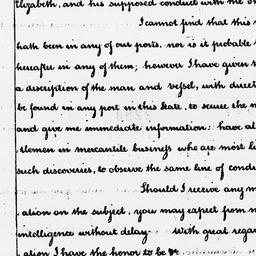 Elizabeth, and his supposed conduct with the
I cannot find that this
hath been in any of our ports, nor is it probable
hereafter in any of them; however I have given
a description of the man and vessel, with direct
be found in any port in this State, to secure the m
and give me immediate information: have al
tlemen in mercantile business who are most li
such discoveries, to observe the same line of condu
Should I receive any m
ation on the subject, you may expect from m
intelligence without delay. With great regar
ation I have the honor to be